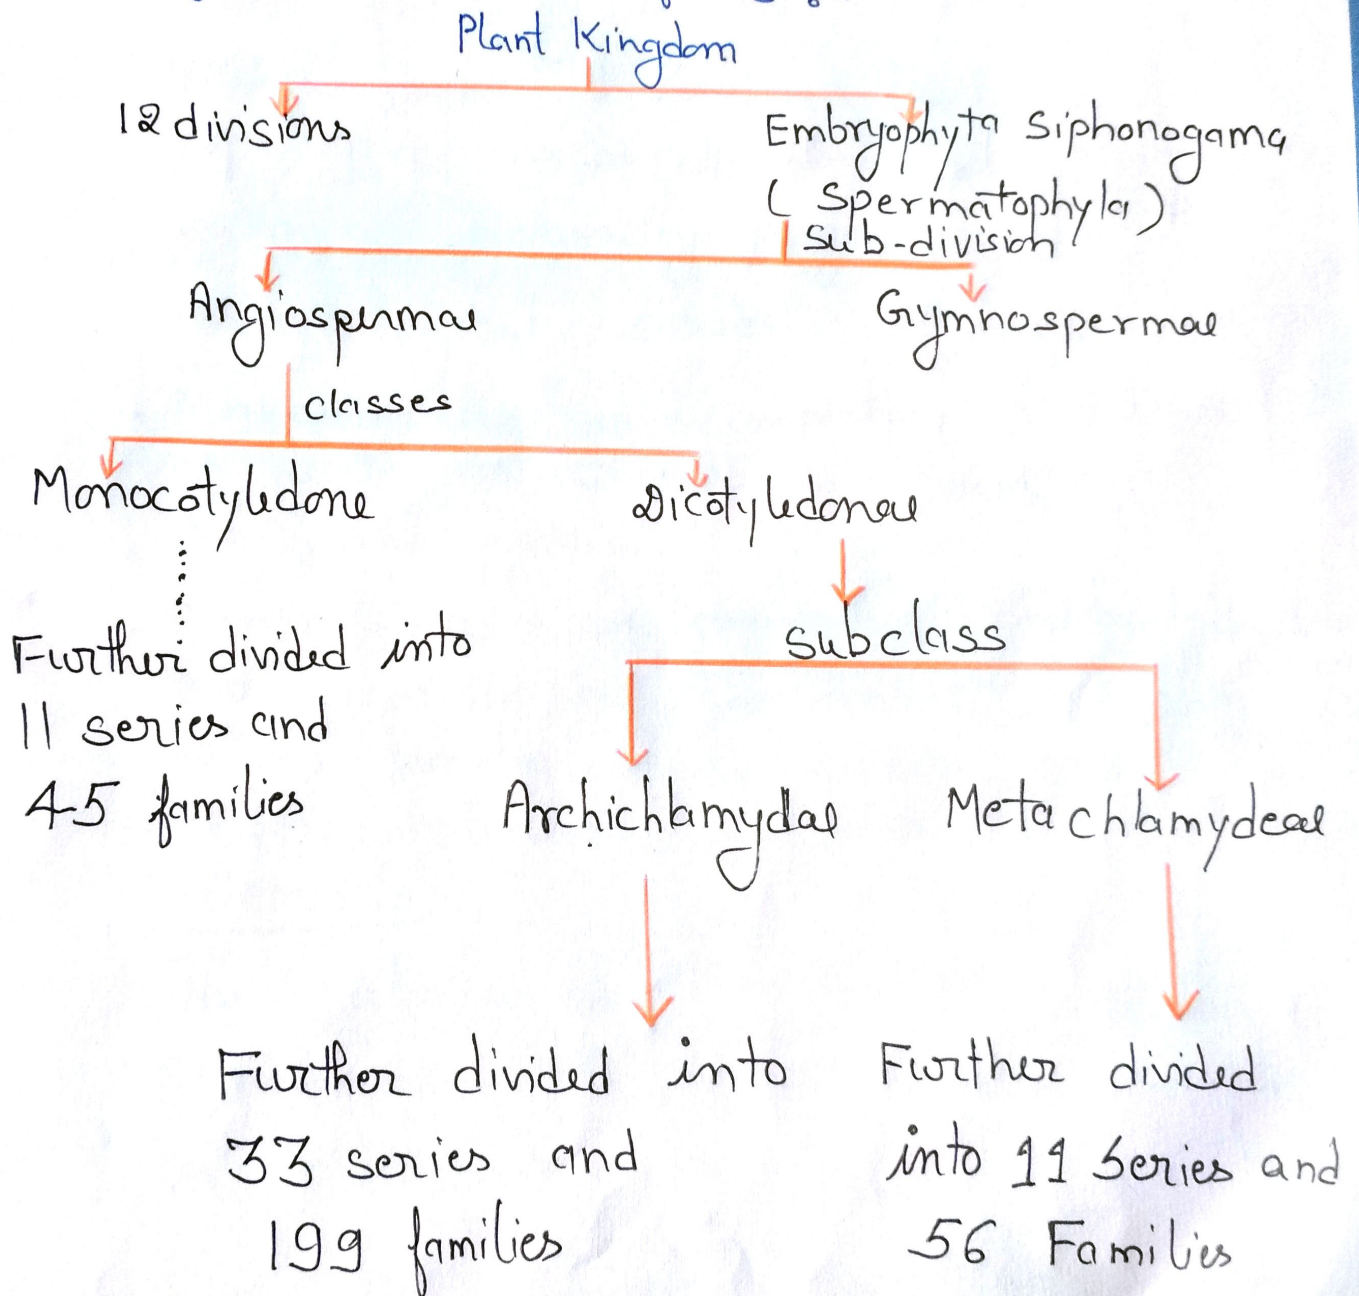 Plant Kingdom
12 divisions
Embryophyta Siphonogama
(Spermatophyla)
Sub-division
Angiospermae
Gymnospermae
classes
Monocotyledone
Dicotyledoneae
Subclass
Further divided into
11 series and
45 families
Archichlamydae
Metachlamydeae
Further divided into
33 series and
199 families
Further divided
into 11 Series and
56 Families